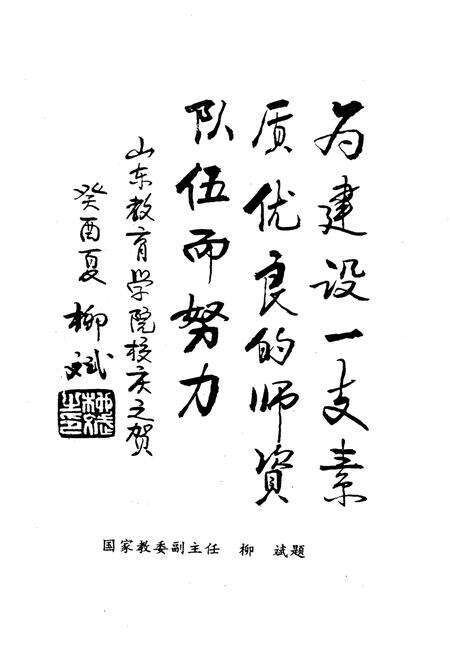 为建设一支素
质优良的师資
队伍而努力
山东教育学院校庆之贺
癸酉夏 柳斌
柳斌之印
国家教委副主任 柳 斌题